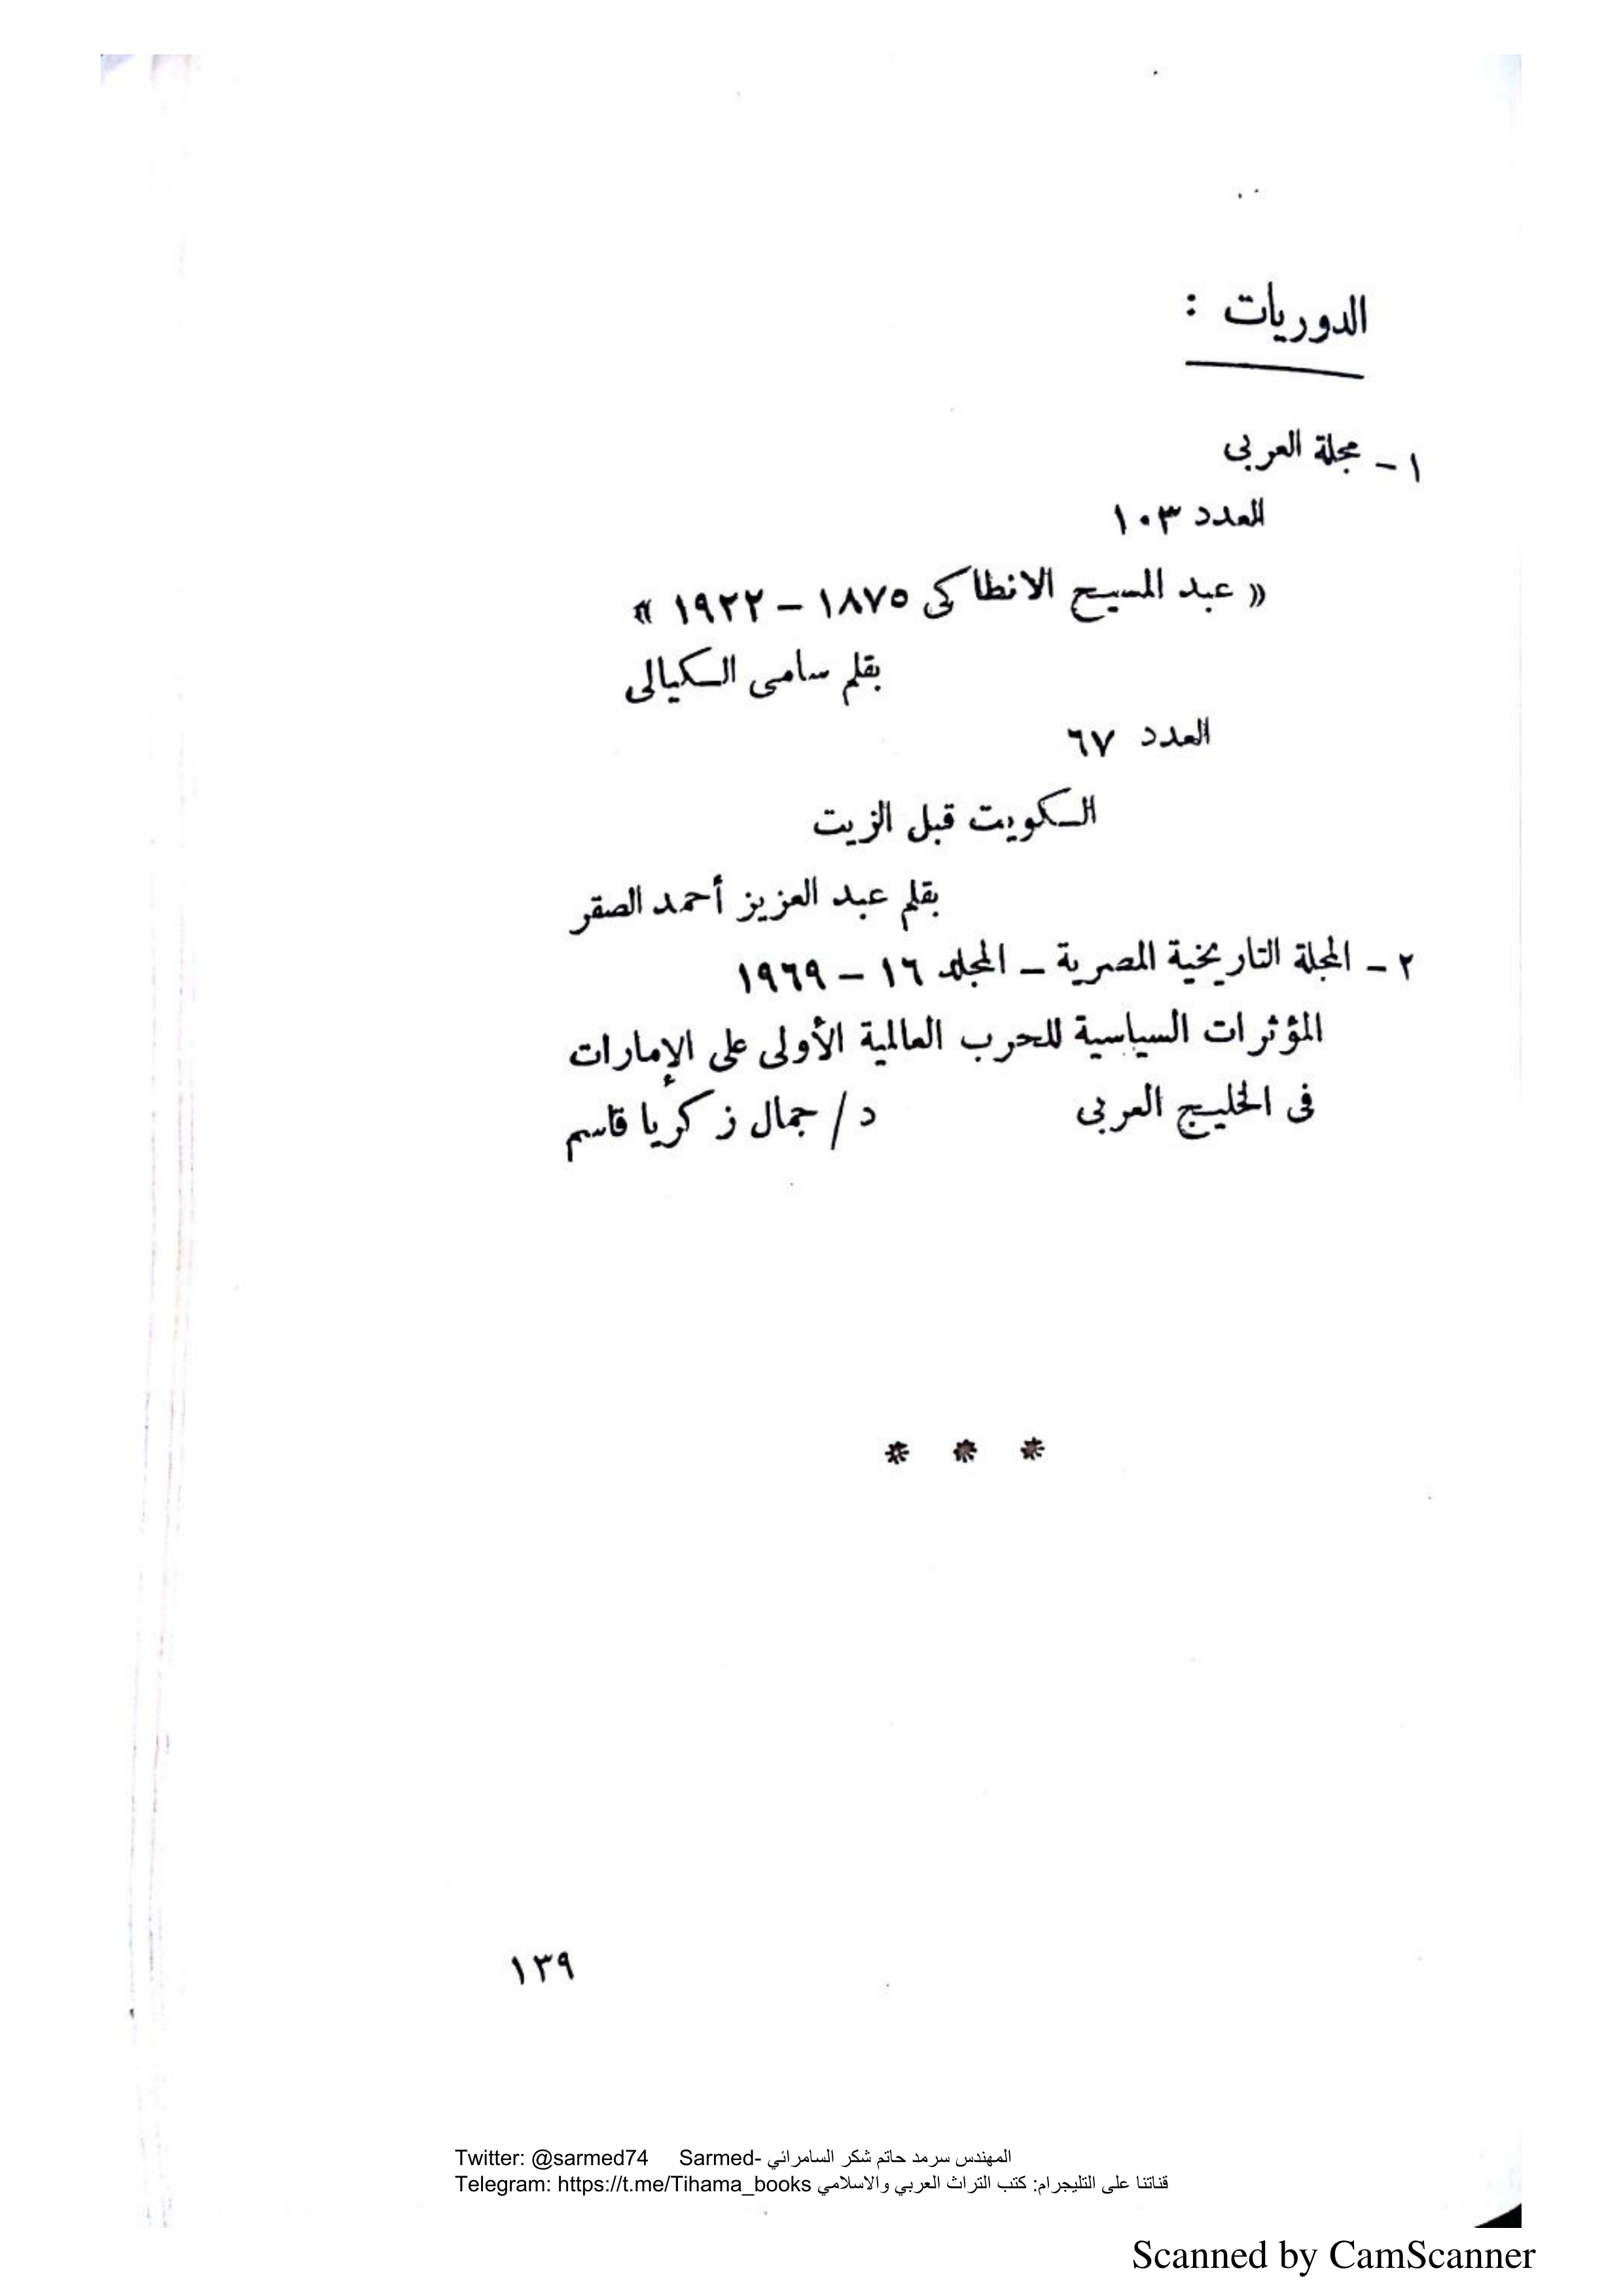 الدوريات :
١ – مجلة العربى
العدد ١٠٣
« عبد المسيح الانطاكى ١٨٧٥ – ١٩٢٢ »
بقلم سامى الكيالى
العدد ٦٧
الكويت قبل الزيت
بقلم عبد العزيز أحمد الصقر
٢ – المجلة التاريخية المصرية – المجلد ١٦ – ١٩٦٩
المؤثرات السياسية للحرب العالمية الأولى على الإمارات
فى الخليج العربى د/ جمال زكريا قاسم
* * *
١٣٩
Twitter: @sarmed74 Sarmed- المهندس سرمد حاتم شكر السامرائي
Telegram: https://t.me/Tihama_books قناتنا على التليجرام: كتب التراث العربي والاسلامي
Scanned by CamScanner